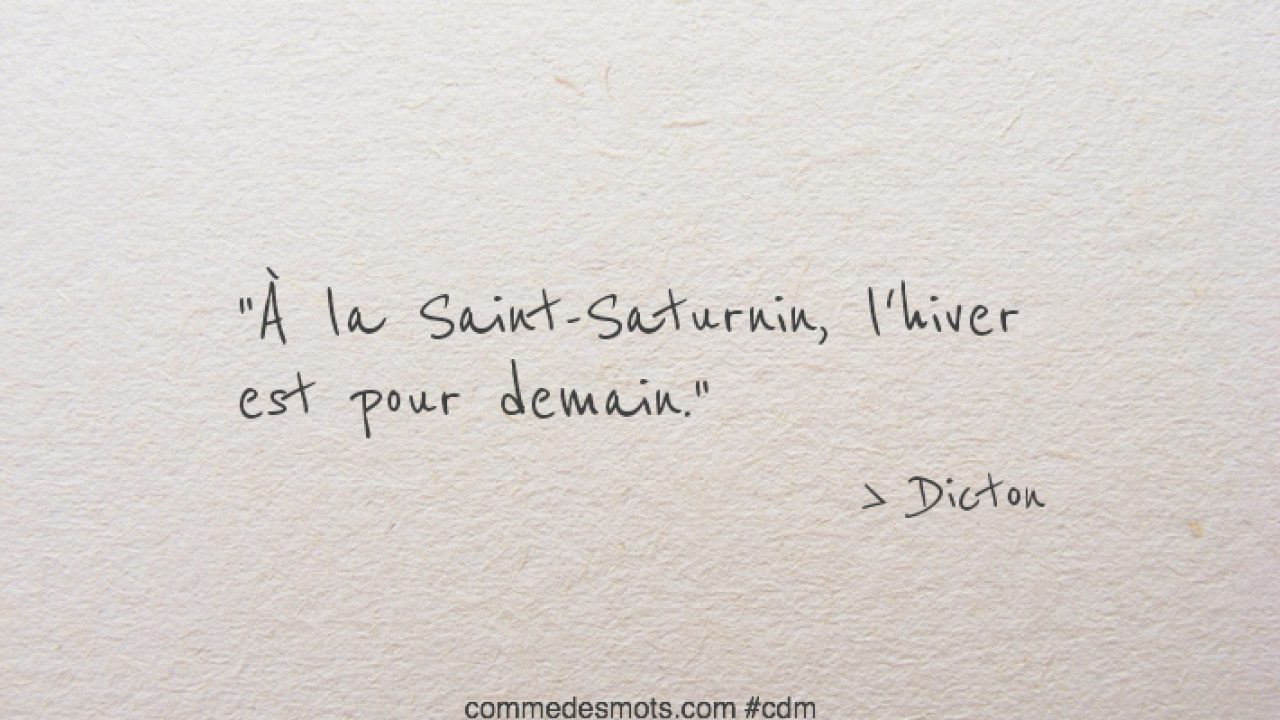 "À la Saint-Saturnin, l'hiver
est pour demain."
> Dicton
commedesmots.com #cdm